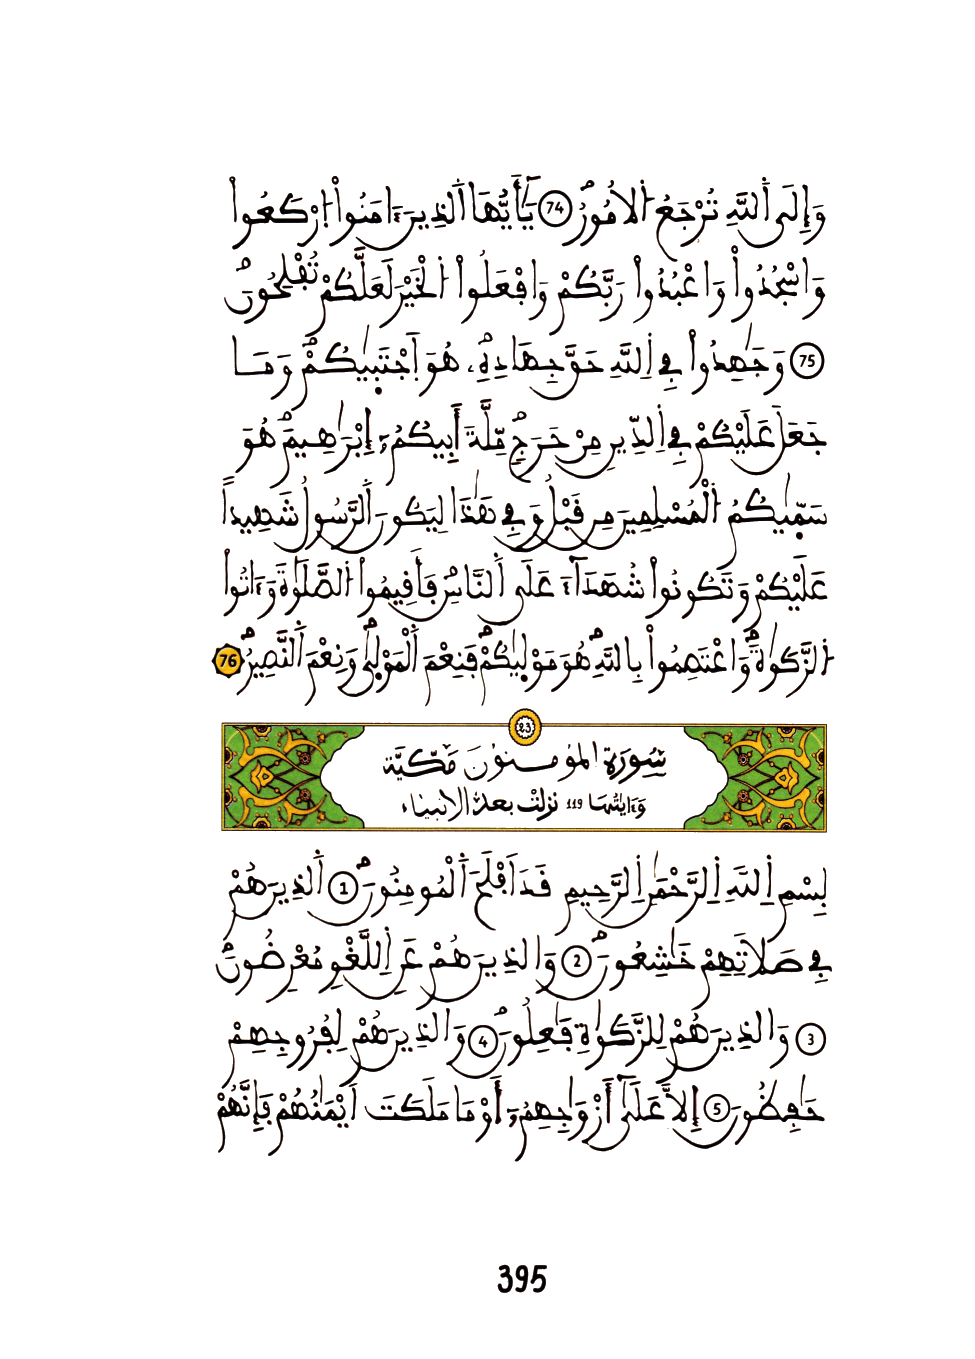 وَإِلَى اَ۬للَّهِ تُرْجَعُ اُ۬لُامُورُۖ 74 يَٰٓأَيُّهَا اَ۬لذِينَ ءَامَنُواْ اُ۪رْكَعُواْ
وَاسْجُدُواْ وَاعْبُدُواْ رَبَّكُمْ وَافْعَلُواْ اُ۬لْخَيْرَ لَعَلَّكُمْ تُفْلِحُونَۖ
75 وَجَٰهِدُواْ فِے اِ۬للَّهِ حَقَّ جِهَادِهِۦۖ هُوَ اَ۪جْتَب۪يٰكُمْۖ وَمَا
جَعَلَ عَلَيْكُمْ فِے اِ۬لدِّينِ مِنْ حَرَجٖۖ مِّلَّةَ أَبِيكُمُۥٓ إِبْرَٰهِيمَۖ هُوَ
سَمّ۪يٰكُمُ اُ۬لْمُسْلِمِينَ مِن قَبْلُ وَفِے هَٰذَا لِيَكُونَ اَ۬لرَّسُولُ شَهِيداً
عَلَيْكُمْ وَتَكُونُواْ شُهَدَآءَ عَلَى اَ۬لنَّاسِۖ فَأَقِيمُواْ اُ۬لصَّلَوٰةَ وَءَاتُواْ
اُ۬لزَّكَوٰةَۖ وَاعْتَصِمُواْ بِاللَّهِۖ هُوَ مَوْل۪يٰكُمْۖ فَنِعْمَ اَ۬لْمَوْل۪ىٰۖ وَنِعْمَ اَ۬لنَّصِيرُۖ 76
23
سُورَةُ المُومِنُونَ مَكِّيَّة
وَءَايَٰتُهَا 119 نزلت بعد الانبياء
بِسْمِ اِ۬للَّهِ اِ۬لرَّحْمَٰنِ اِ۬لرَّحِيمِ قَدَ اَفْلَحَ اَ۬لْمُومِنُونَۖ 1 اَ۬لذِينَ هُمْ
فِے صَلَاتِهِمْ خَٰشِعُونَۖ 2 وَالذِينَ هُمْ عَنِ اِ۬للَّغْوِ مُعْرِضُونَۖ
3 وَالذِينَ هُمْ لِلزَّكَوٰةِ فَٰعِلُونَۖ 4 وَالذِينَ هُمْ لِفُرُوجِهِمْ
حَٰفِظُونَ 5 إِلَّا عَلَىٰٓ أَزْوَٰجِهِمُۥٓ أَوْ مَا مَلَكَتَ اَيْمَٰنُهُمْ فَإِنَّهُمْ
395